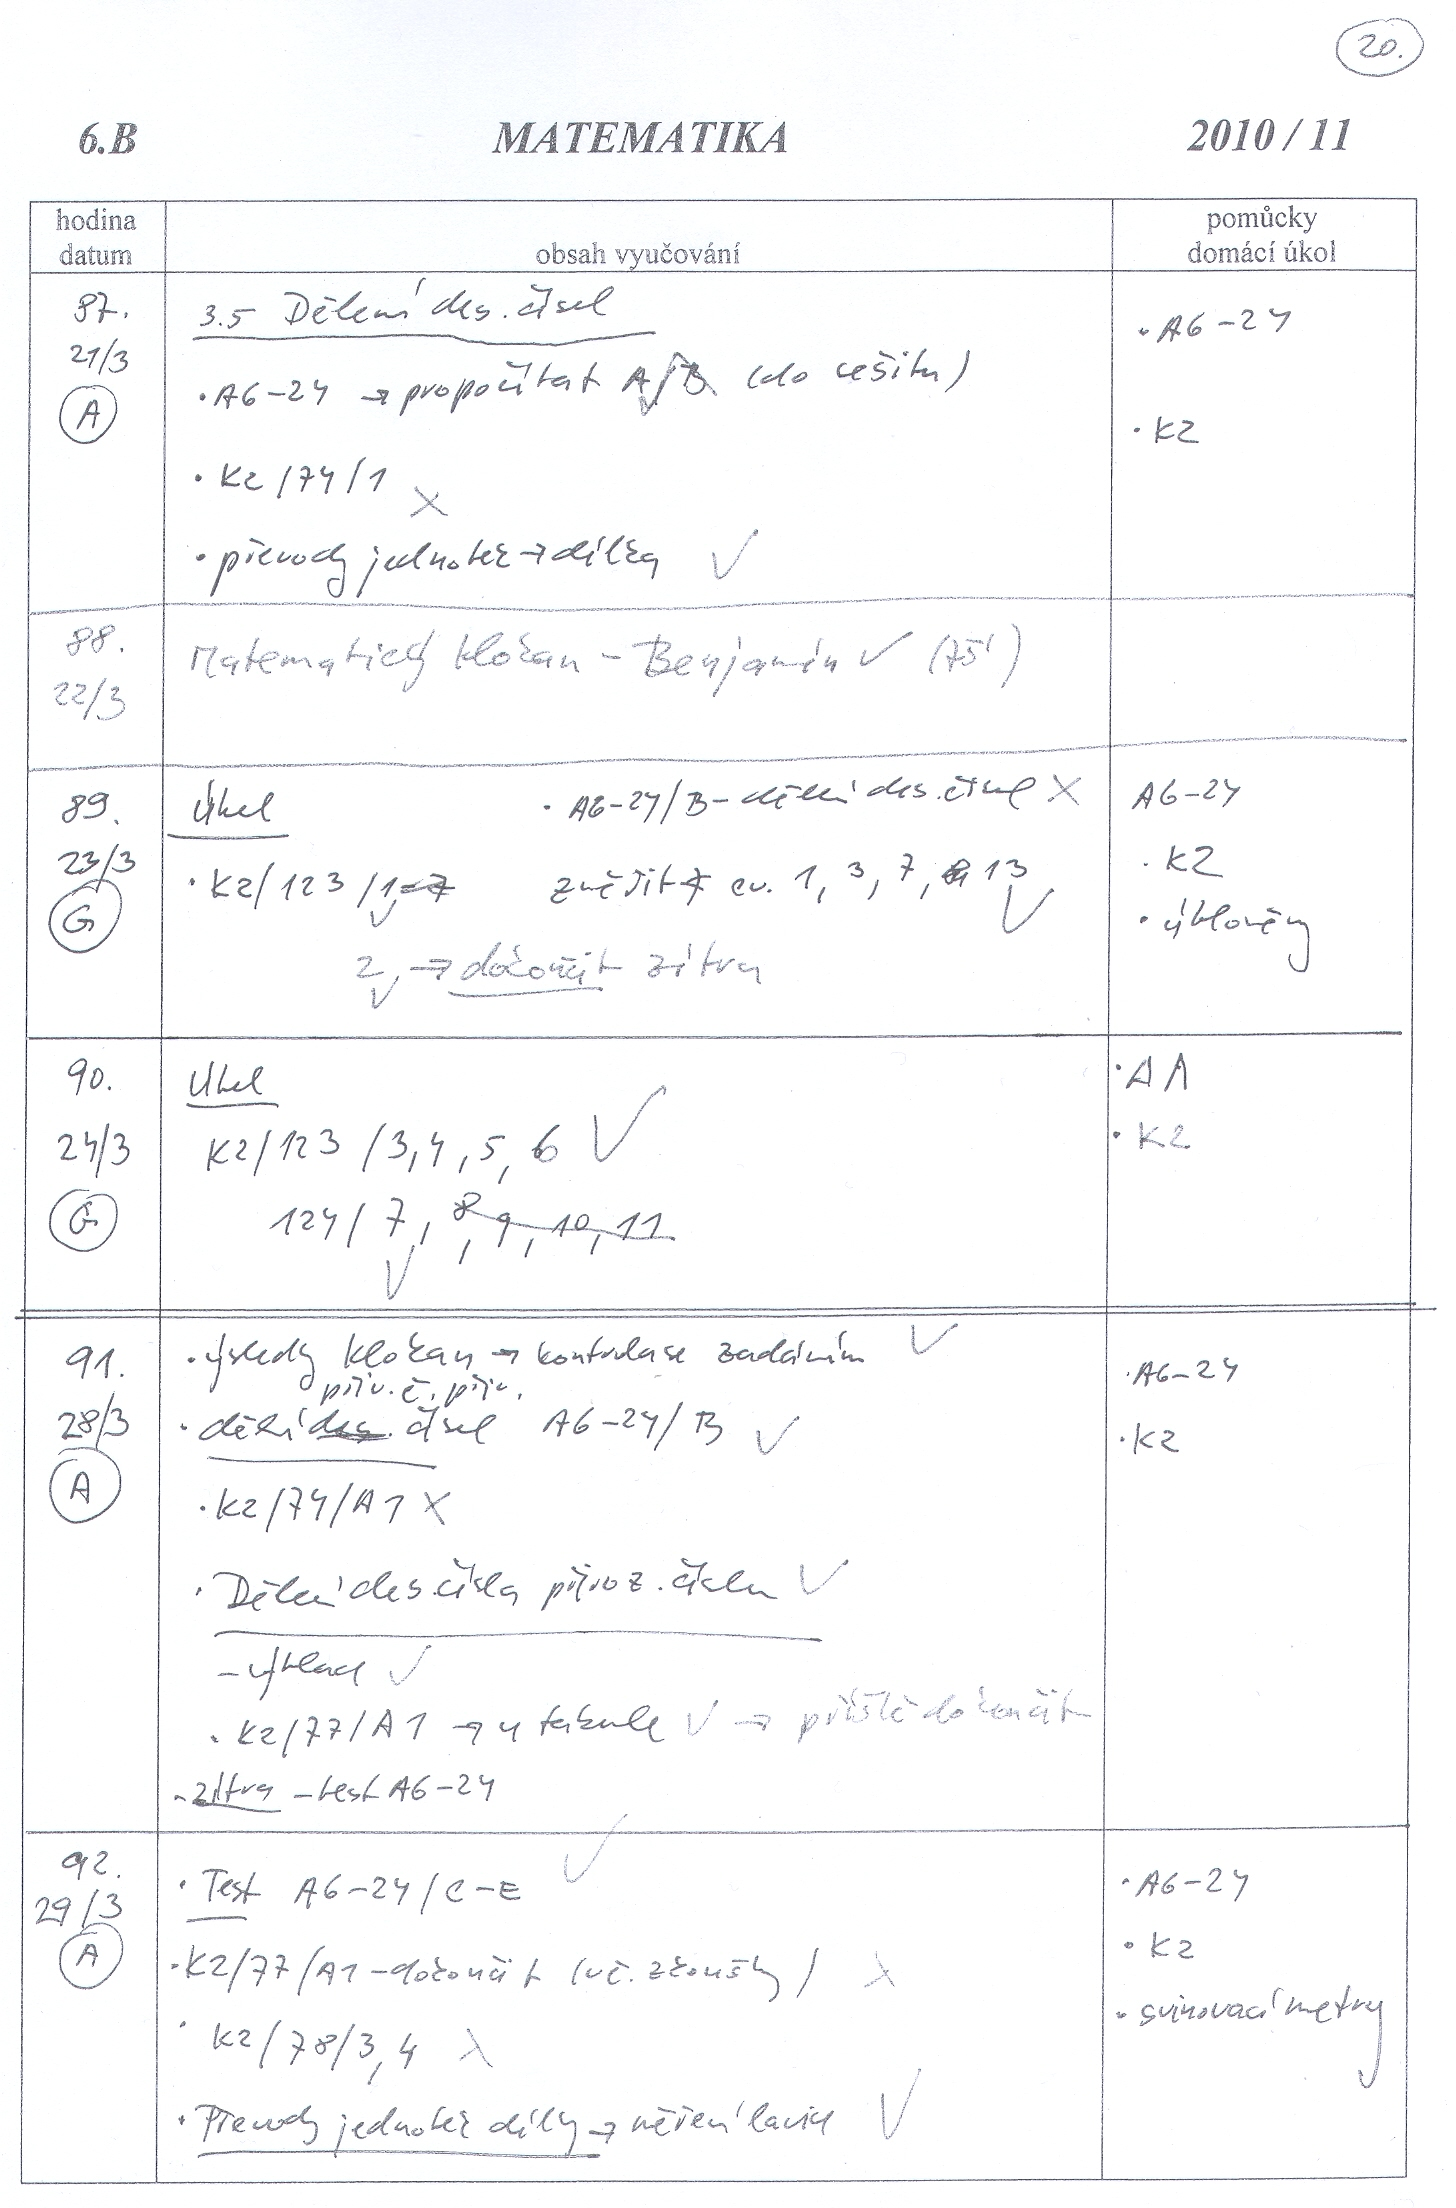 20.
6.B MATEMATIKA 2010 / 11
hodina
datum
obsah vyučování
pomůcky
domácí úkol
87.
21/3
A
3.5 Dělení des. čísel
• A6-24 → propočítat A, B (do sešitu)
• K2/74/1 X
• převody jednotek → délka ✓
• A6-24
• K2
88.
22/3
Matematický klokan - Benjamín ✓
89.
23/3
G
Úhel
• A6-24/B - dělení des. čísel X
• K2/123/1-7
změřit cv. 1, 3, 7, 13 ✓
2, → dokončit zítra
A6-24
• K2
• úhloměry
90.
24/3
G
Úhel
K2/123/3,4,5,6 ✓
124/7, 8, 9, 10, 11
• K2
91.
28/3
A
• výsledky klokan → kontrola se zadáním ✓
přir. č. přir.
• dělení des. čísel A6-24/B ✓
• K2/74/A1 X
• Dělení des. čísla přiroz. číslem ✓
- výklad ✓
• K2/77/A1 → u tabule ✓ → příště dokončit
- zítra - test A6-24
• A6-24
• K2
92.
29/3
A
• Test A6-24/C-E ✓
• K2/77/A1 - dokončit (vč. zkoušky) X
• K2/78/3,4 X
• Převody jednotek délky → měření lavice ✓
• A6-24
• K2
• svinovací metry ✓